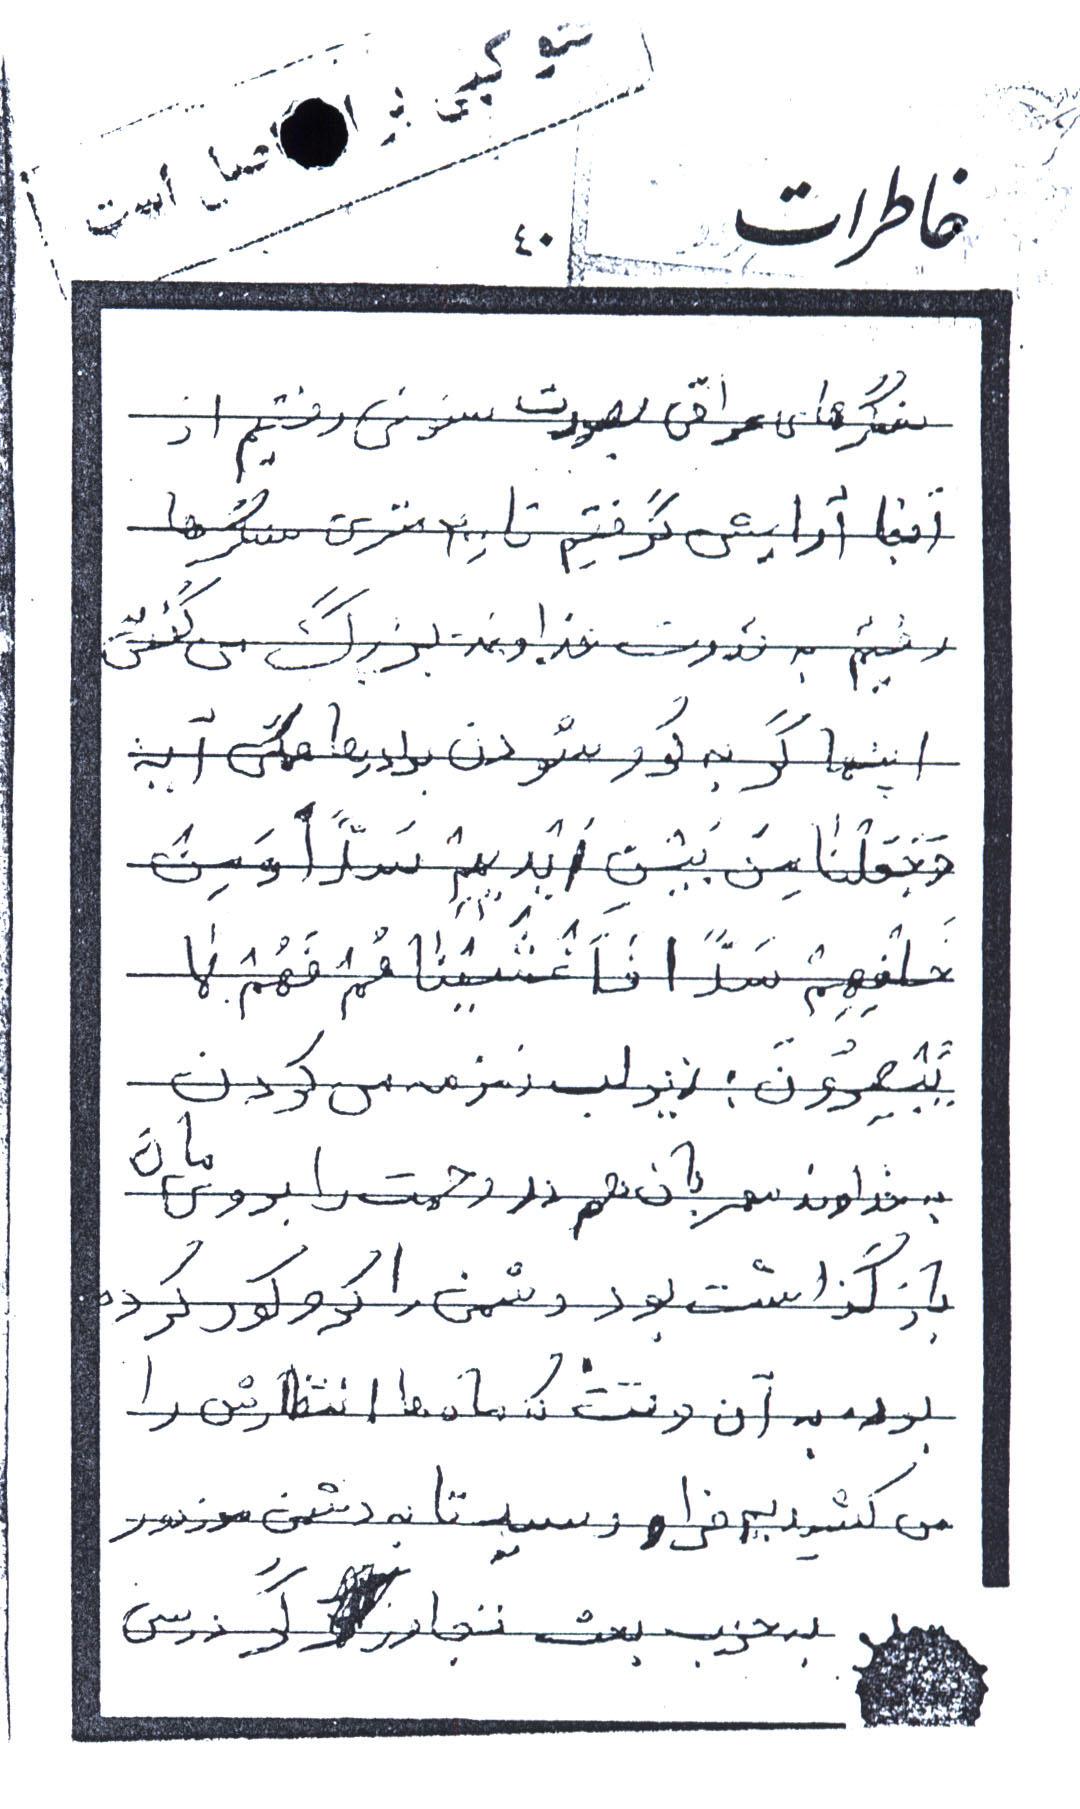 فتو کپی برابر اصل است
خاطرات
۴۰
سنگرهای عراقی بصورت ستونی رفتیم از
آنجا آرایش گرفتیم تا ۲۰ متری سنگرها
رفتیم به قدرت خداوند بزرگ می گفتی
اینها گو به کور شودن برادرها همگی آیه
وَجَعَلْنٰا مِنْ بَیْنِ اَیْدیهِمْ سَدّاً وَ مِنْ
خَلْفِهِمْ سَدّاً فَاَغْشَیْنٰا هُمْ فَهُمْ لٰا
یُبْصِرُونَ زیر لب زمزمه می کردن
خداوند مهربان هم در رحمت را بروی مان
باز گذاشت بود دشمن را کر و کور کرده
بود به آن وقت که ماه ها انتظارش را
می کشیدیم فرا رسید تا به دشمن مزدور
به حزب بعث تجاوزگر درسی